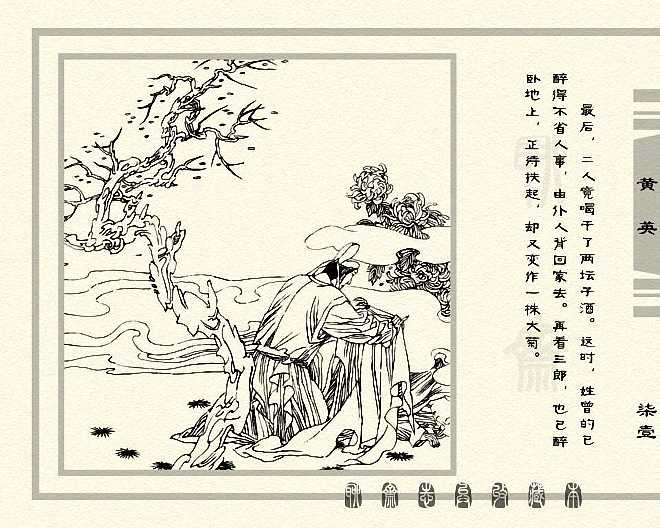 黄英
柒壹
最后，二人竟喝干了两坛子酒。这时，姓曾的已
醉得不省人事，由仆人背回家去。再看三郎，也已醉
卧地上，正待扶起，却又变作一株大菊。
聊斋志异收藏本